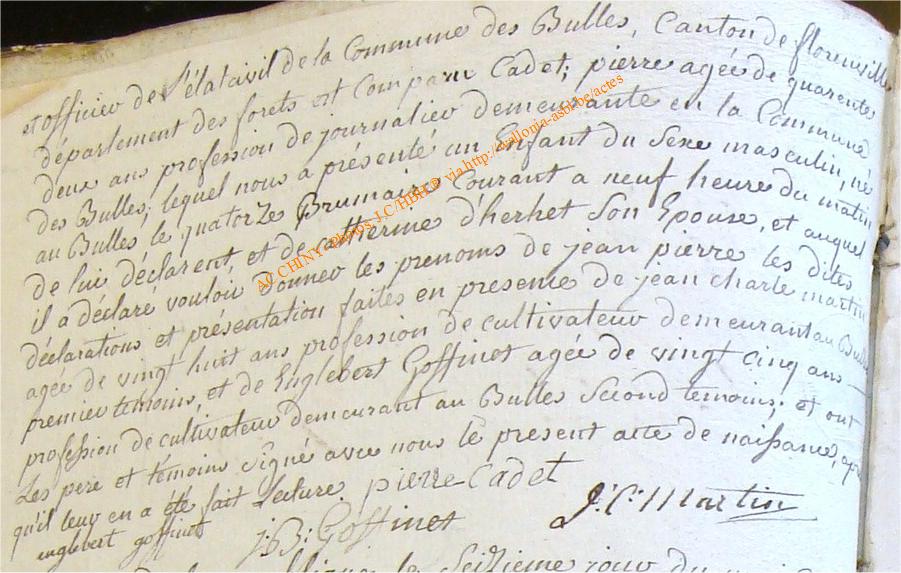 et officier de l'état civil de la Commune des Bulles, Canton de florenville
département des forets est Comparu Cadet; pierre agée de quarentes
deux ans profession de journalier demeurante en la Commune
des Bulles; lequel nous a présenté un Enfant du Sexe masculin, né
au Bulles le quatorze Brumaire Courant a neuf heure du matin
de lui déclarent, et de catherine d'herbet Son Epouse, et auquel
il a déclaré vouloir donner les prenoms de jean pierre les dites
déclarations et présentation faites en presence de jean charle martin
agée de vingt huit ans profession de cultivateur demeurant au Bulles
premier temoins, et de Englebert Goffinet agée de vingt cinq ans
profession de cultivateur demeurant au Bulles Second temoins; et ont
Les pere et témoins signé avec nous le present acte de naissance, après
qu'il leur en a été fait Lecture. pierre Cadet
englebert goffinet J:B: Goffinet J:C: Martin
le Seizieme jour du
AC CHINY Photos J.C/HBH © via http://wallonia-asbl.be/actes